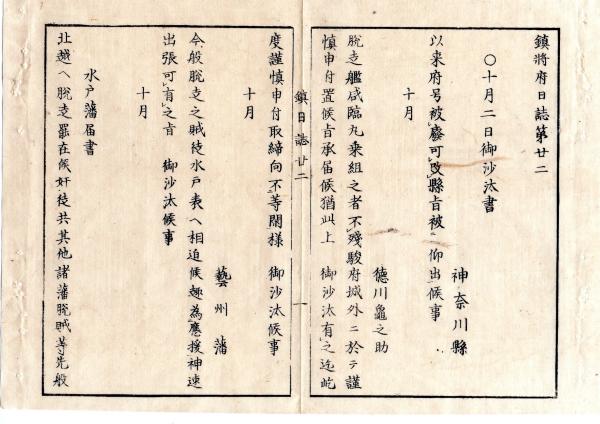 鎮將府日誌第廿二
〇十月二日御沙汰書
神奈川縣
以来府号被廢可改縣旨被 仰出候事
十月
德川龜之助
脱走艦咸臨丸乗組之者不殘駿府城外ニ於テ謹
慎申付置候旨承届候猶此上 御沙汰有之迄屹
鎮日誌廿二
一
度謹慎申付取締向不等閑様 御沙汰候事
十月
藝州藩
今般脱走之賊徒水戸表ヘ相迫候趣為應援神速
出張可有之旨 御沙汰候事
十月
水戸藩届書
北越ヘ脱走罷在候奸徒共其他諸藩脱賊等先般